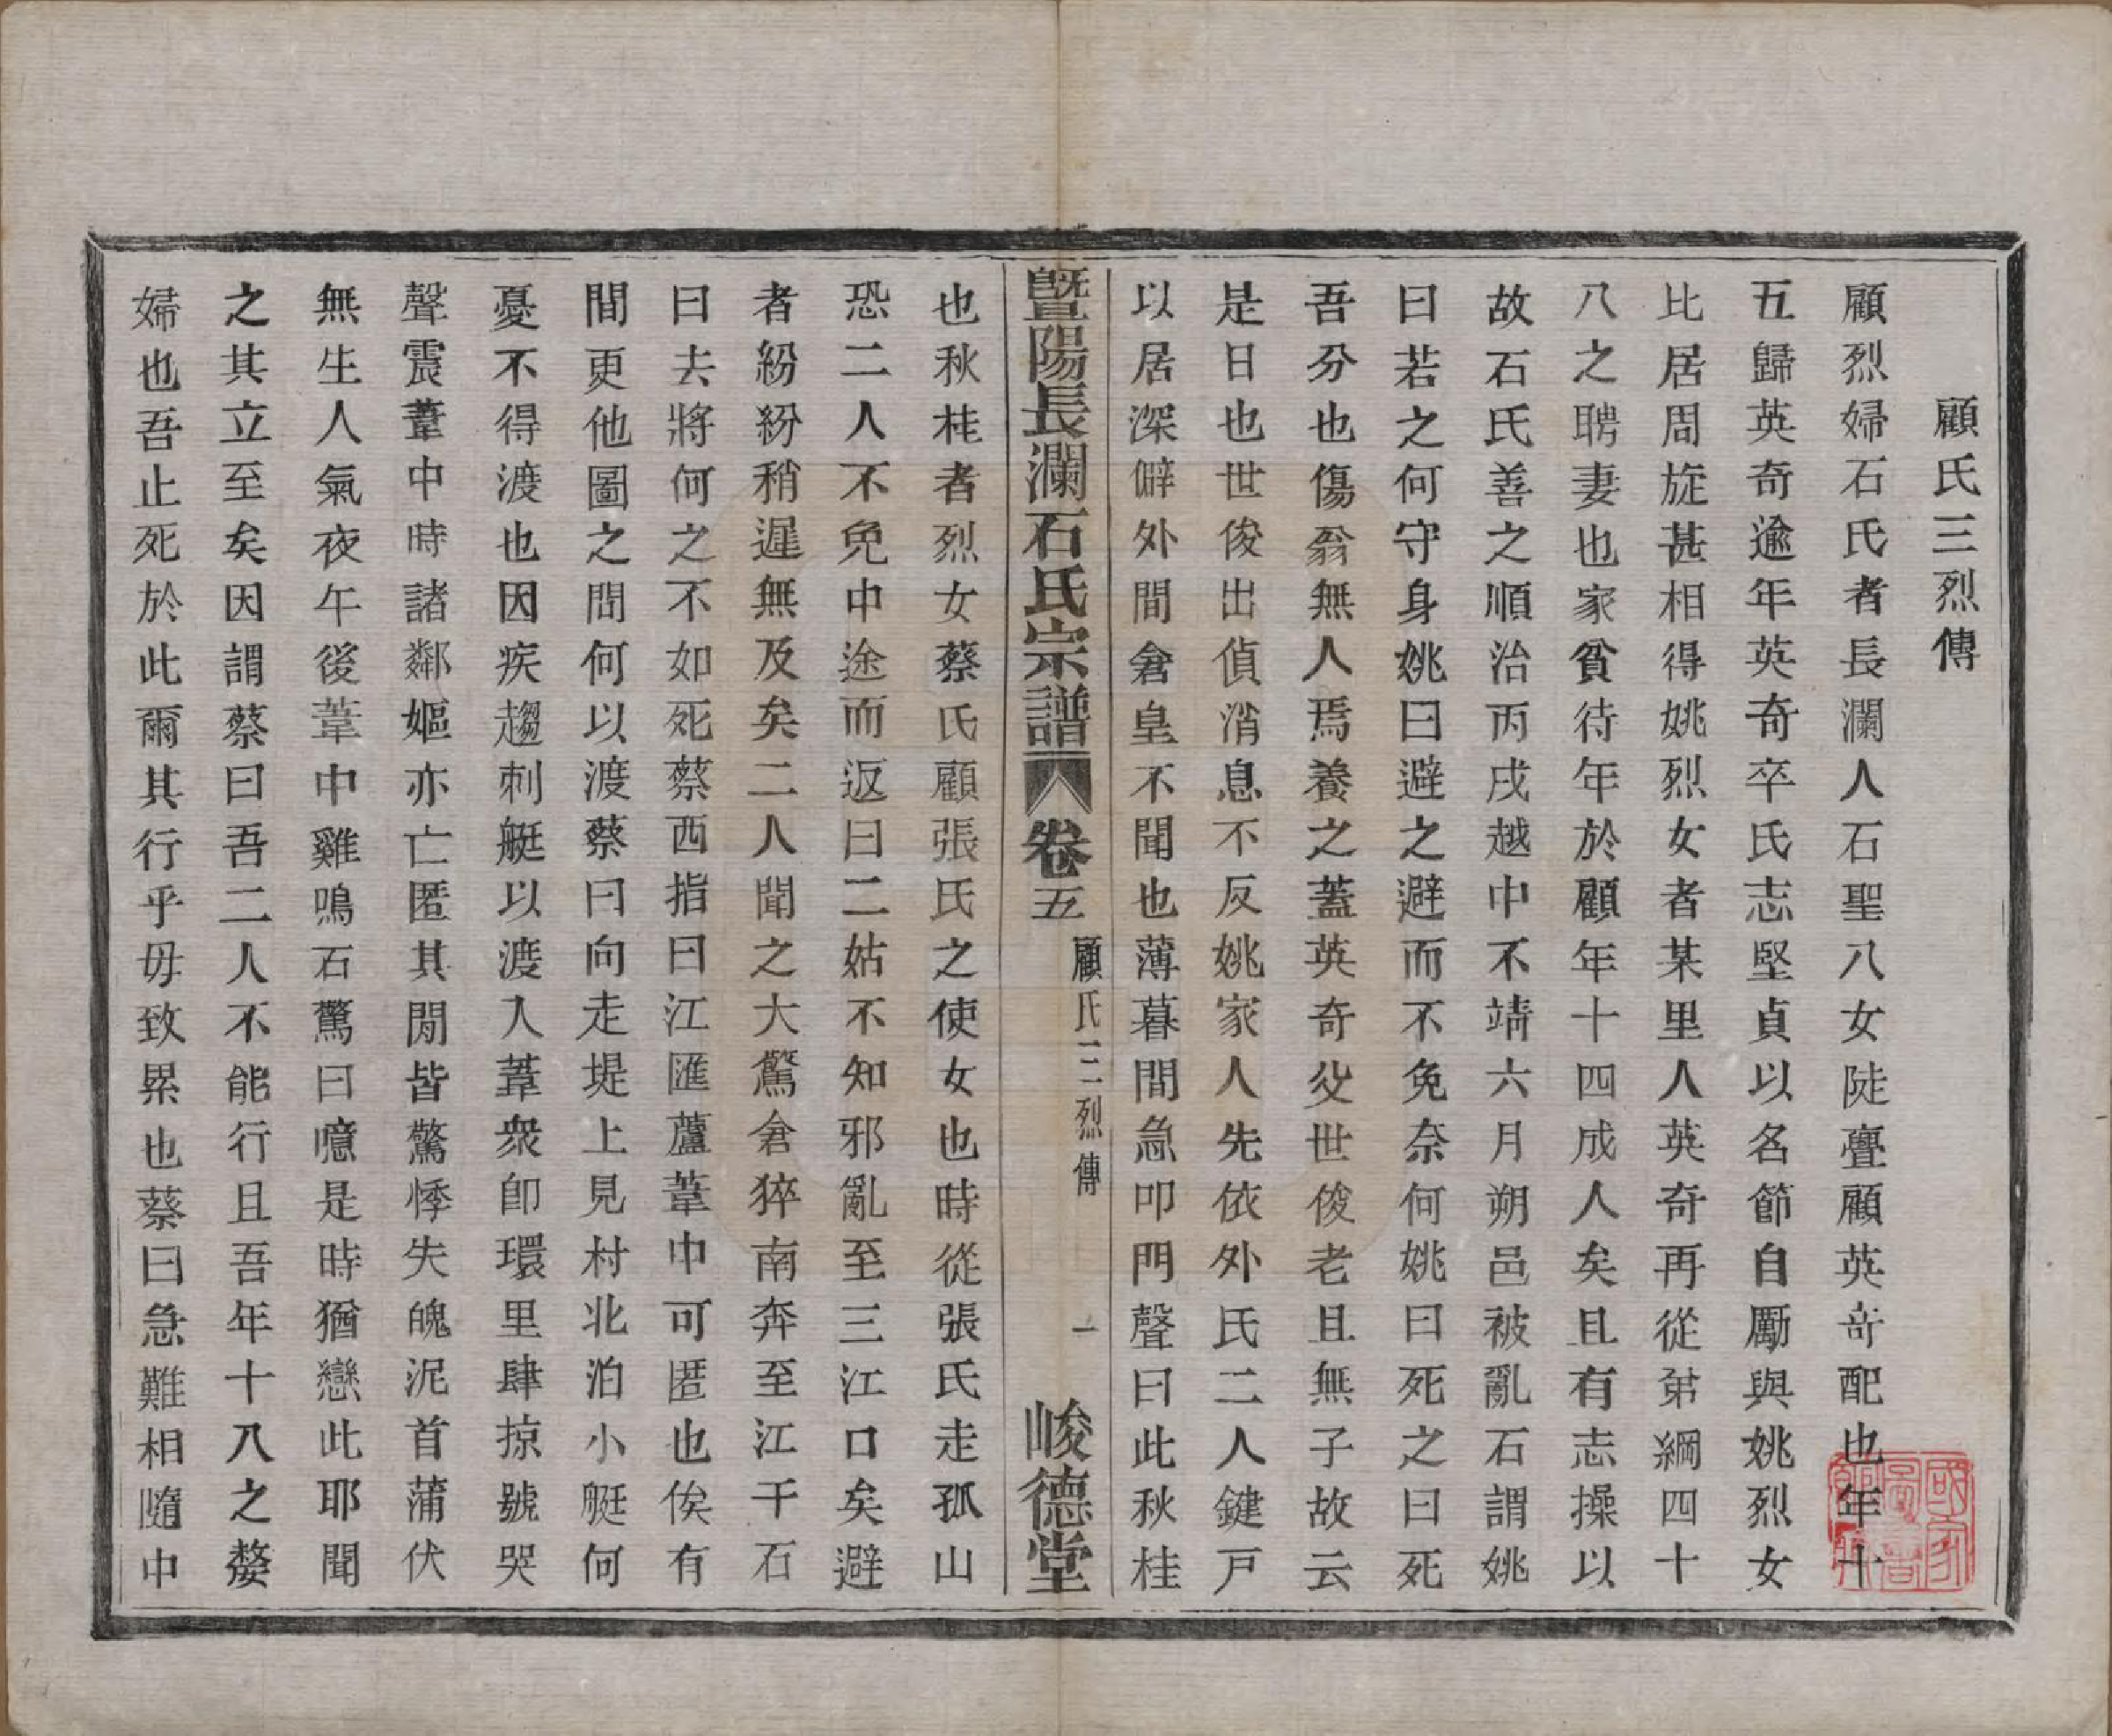 顧氏三烈傳
顧烈婦石氏者長瀾人石聖八女陡亹顧英奇配也年十
五歸英奇逾年英奇卒氏志堅貞以名節自勵與姚烈女
比居周旋甚相得姚烈女者某里人英奇再從弟綱四十
八之聘妻也家貧待年於顧年十四成人矣且有志操以
故石氏善之順治丙戌越中不靖六月朔邑被亂石謂姚
曰若之何守身姚曰避之避而不免奈何姚曰死之曰死
吾分也傷翁無人焉養之蓋英奇父世俊老且無子故云
是日也世俊出偵消息不反姚家人先依外氏二人鍵戸
以居深僻外間倉皇不聞也薄暮間急叩門聲曰此秋桂
暨陽長瀾石氏宗譜 卷五 顧氏三烈傳 一 峻德堂
也秋桂者烈女蔡氏顧張氏之使女也時從張氏走孤山
恐二人不免中途而返曰二姑不知邪亂至三江口矣避
者紛紛稍遲無及矣二人聞之大驚倉猝南奔至江干石
曰去將何之不如死蔡西指曰江匯蘆葦中可匿也俟有
間更他圖之問何以渡蔡曰向走堤上見村北泊小艇何
憂不得渡也因疾趨刺艇以渡入葦衆卽環里肆掠號哭
聲震葦中時諸鄰嫗亦亡匿其閒皆驚悸失魄泥首蒲伏
無生人氣夜午後葦中雞鳴石驚曰噫是時猶戀此耶聞
之其立至矣因謂蔡曰吾二人不能行且吾年十八之嫠
婦也吾止死於此爾其行乎毋致累也蔡曰急難相隨中